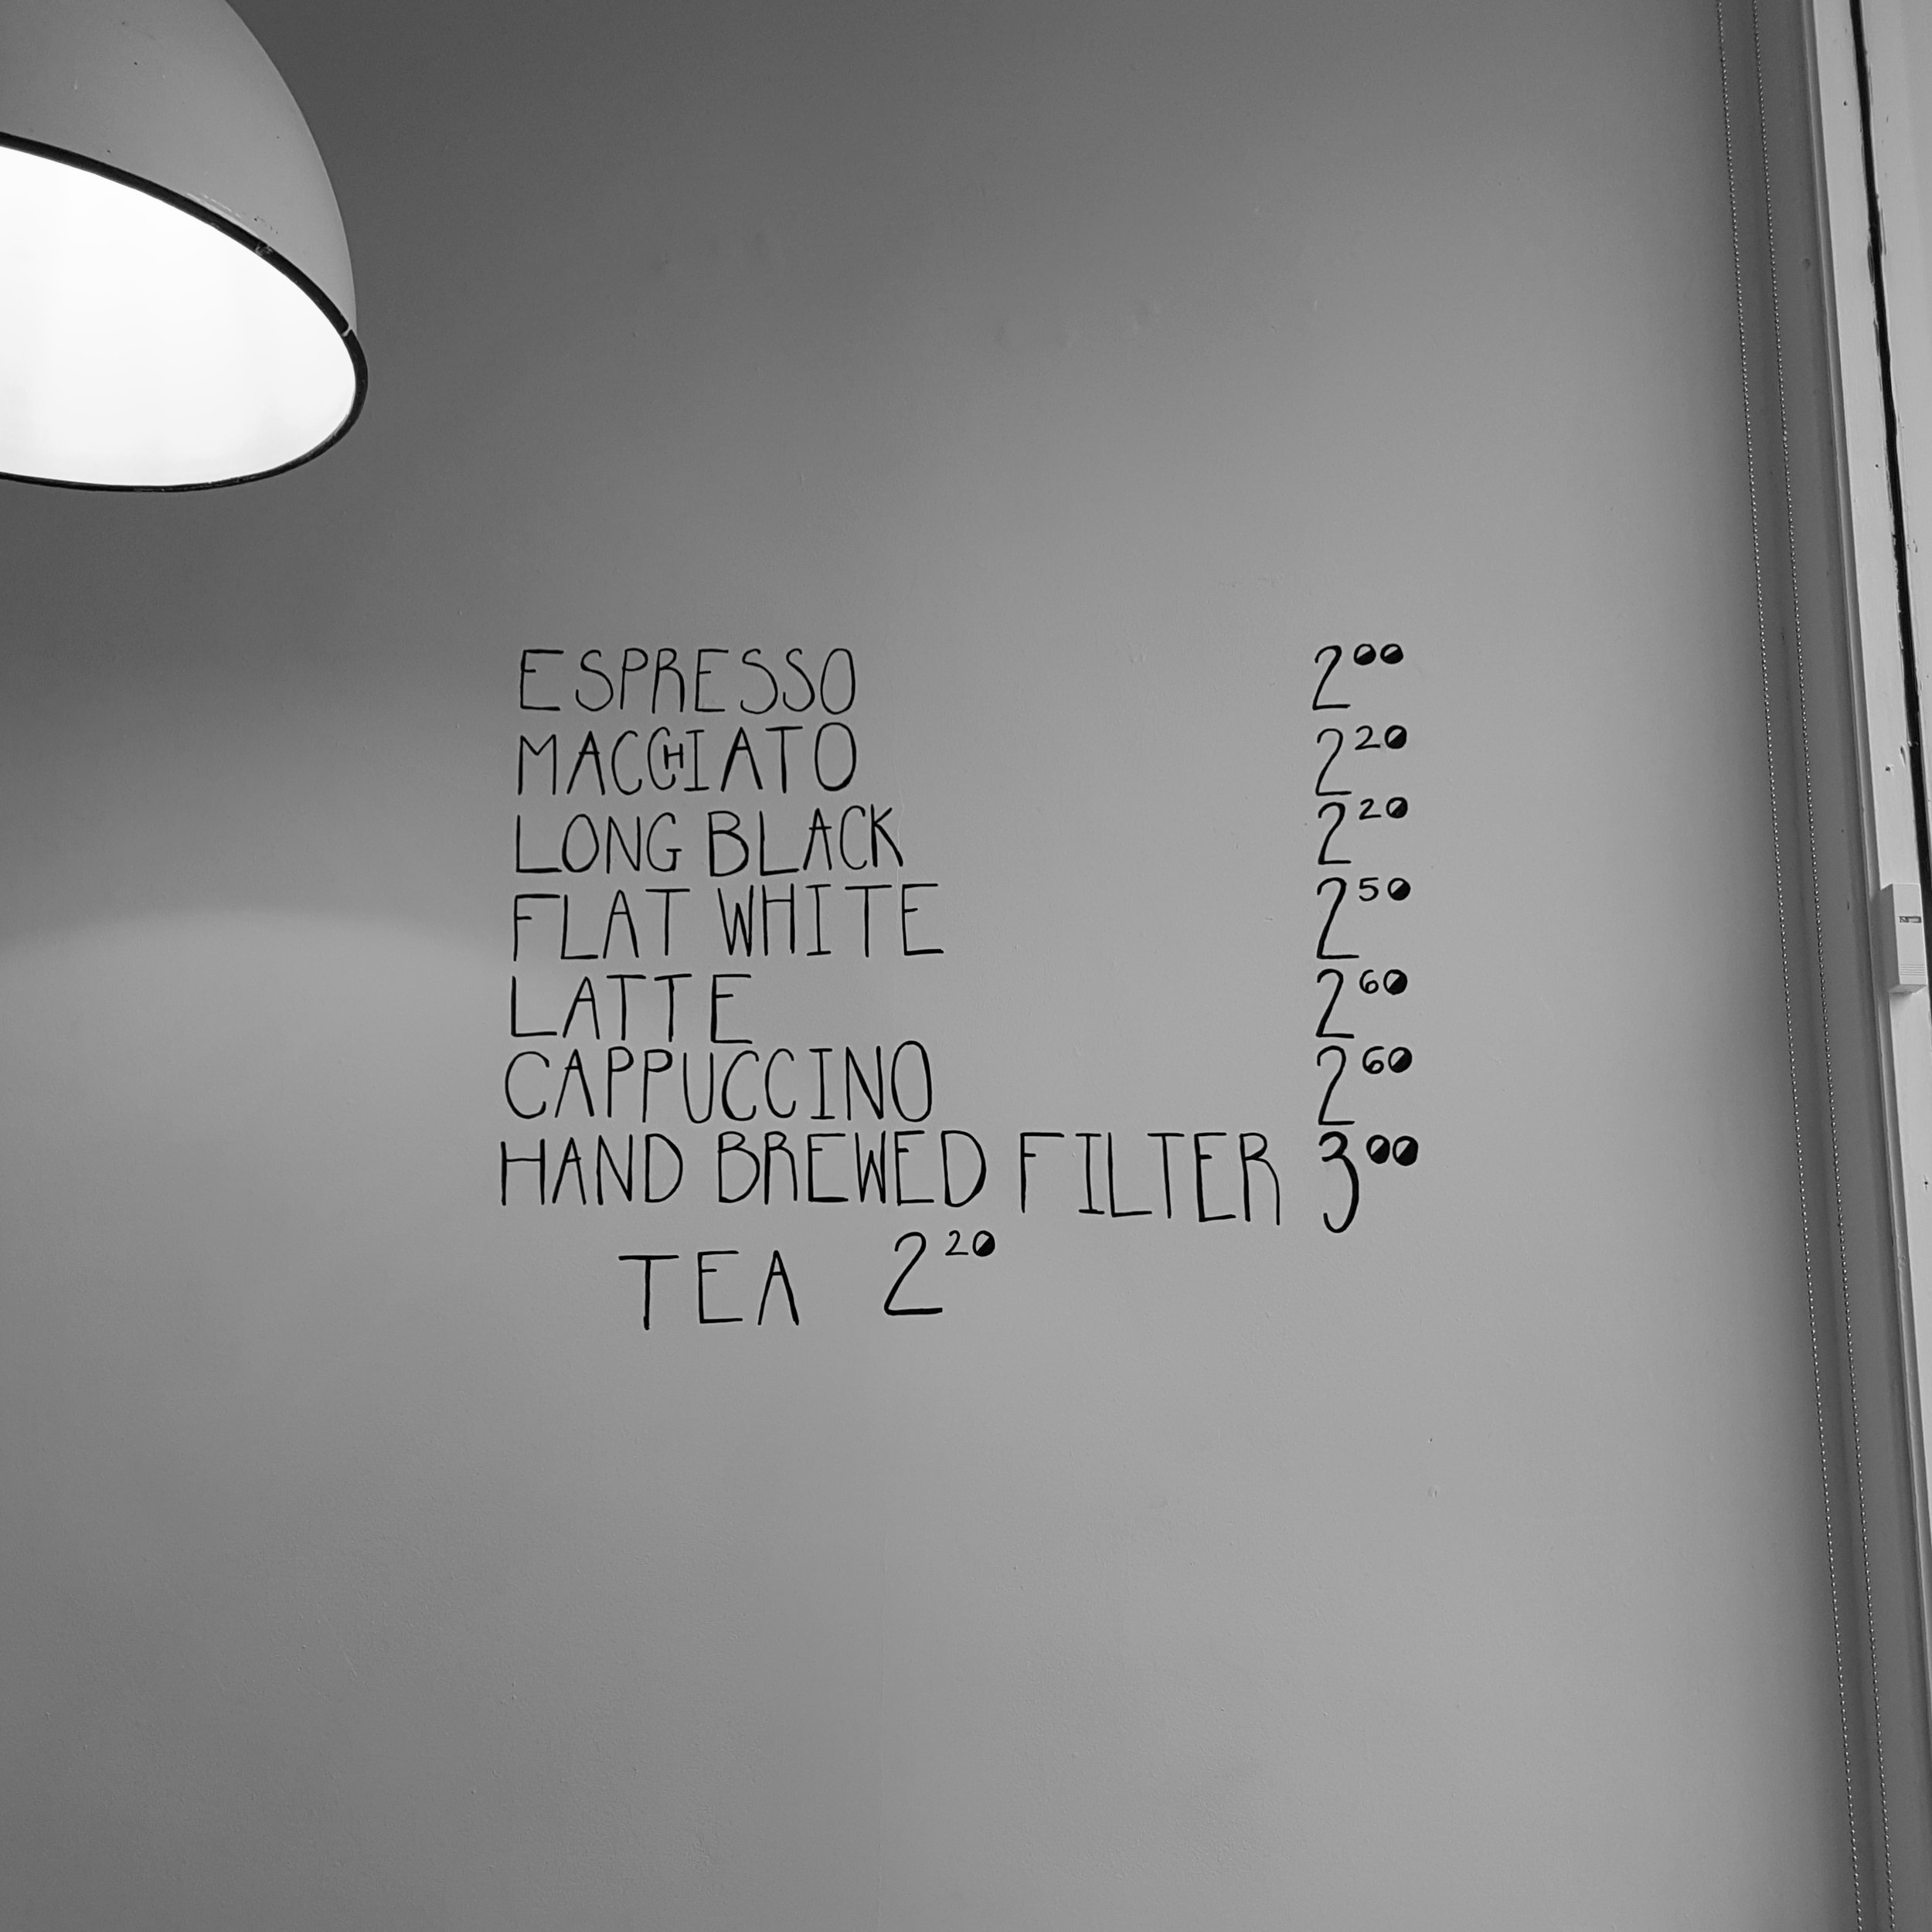 ESPRESSO 2 00
MACCHIATO 2 20
LONG BLACK 2 20
FLAT WHITE 2 50
LATTE 2 60
CAPPUCCINO 2 60
HAND BREWED FILTER 3 00
TEA 2 20